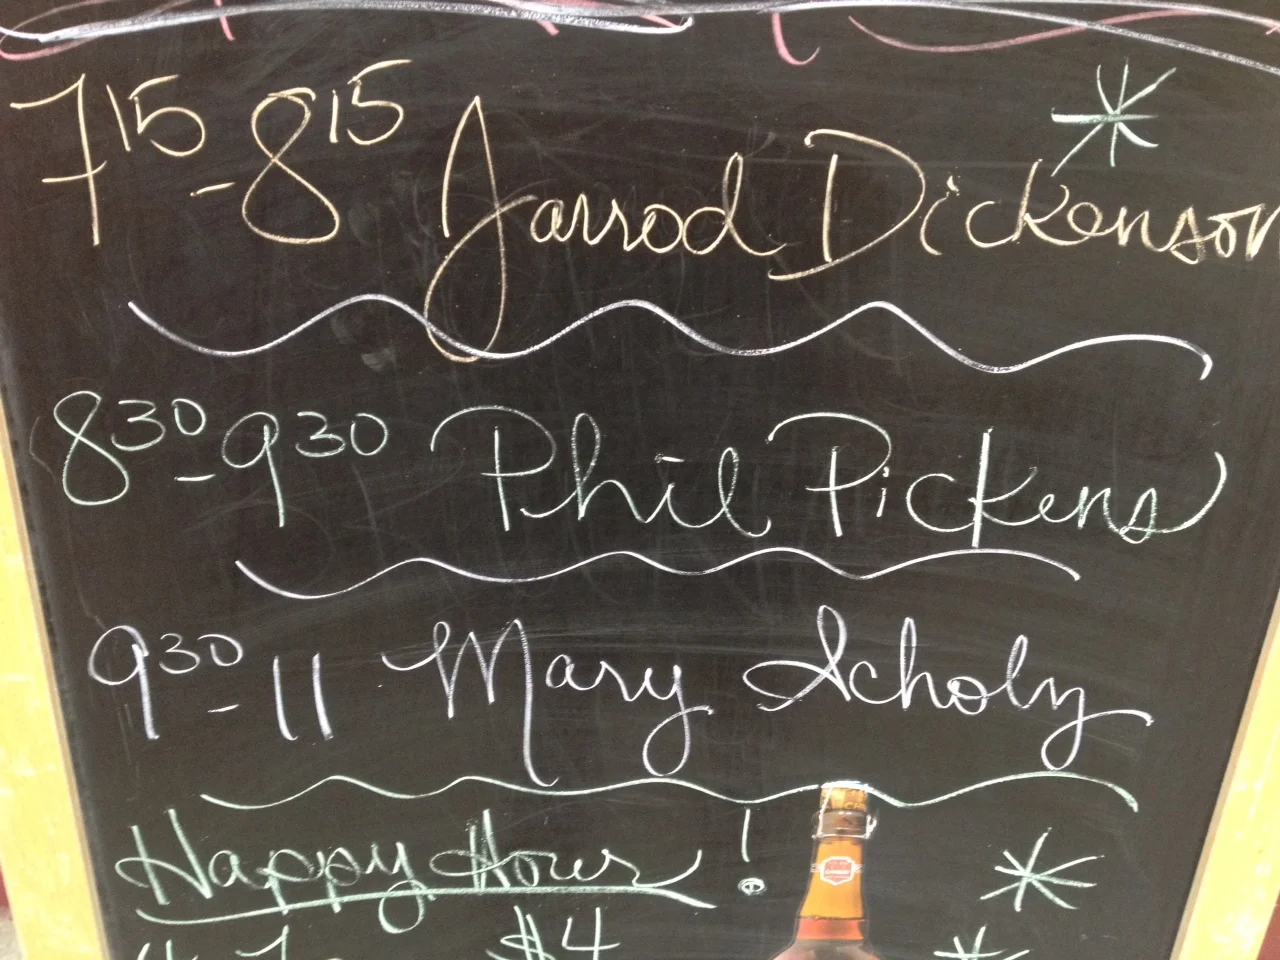 7 15 - 8 15 Jarrod Dickenson
8 30 - 9 30 Phil Pickens
9 30 - 11 Mary Scholz
Happy Hour!
4-7 $4